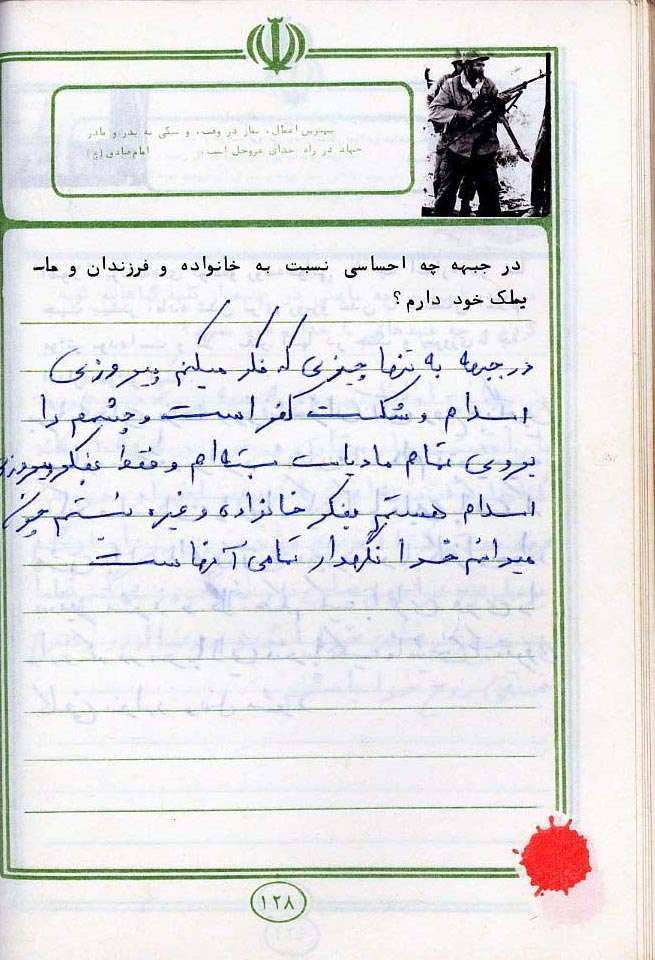 بهترین اعمال، نماز در وقت، و نیکی به پدر و مادر
جهاد در راه خدای عزوجل است. امام صادق (ع)
در جبهه چه احساسی نسبت به خانواده و فرزندان و ما-
یملک خود دارم؟
در جبهه به تنها چیزی که فکر میکنم پیروزی
اسلام و شکست کفر است و چشمم را
بروی تمام مادیات بسته‌ام و فقط بفکر پیروزی
اسلام هستم بفکر خانواده و غیره نیستم چون
میدانم خدا نگهدار تمامی آنهاست
۱۲۸